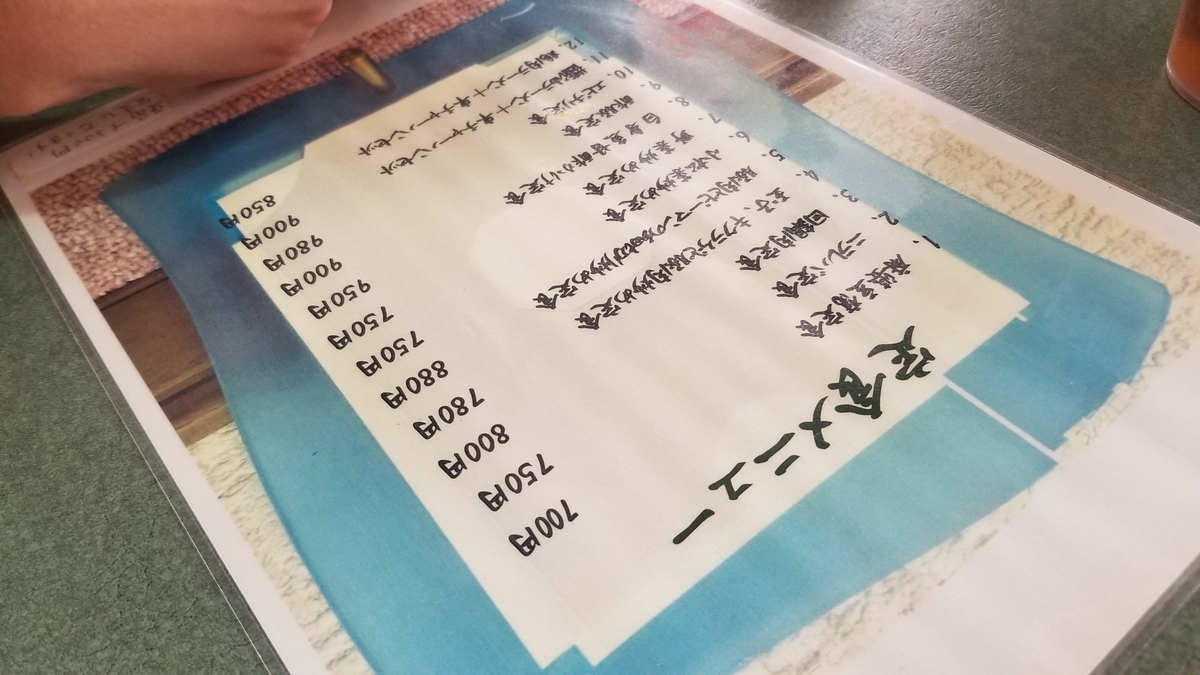 定食メニュー
1. 麻婆豆腐定食 700円
2. ニラレバ定食 750円
3. 回鍋肉定食 800円
4. 玉子、キクラゲと豚肉炒め定食 780円
5. 豚肉とピーマンの炒め定食 880円
6. 小松菜炒め定食 750円
7. 野菜炒め定食 750円
8. 白身魚甘酢かけ定食 950円
9. 酢豚定食 900円
10. エビチリ定食 980円
11. ラーメン＋半チャーハンセット 900円
12. ラーメン＋半チャーハンセット 850円